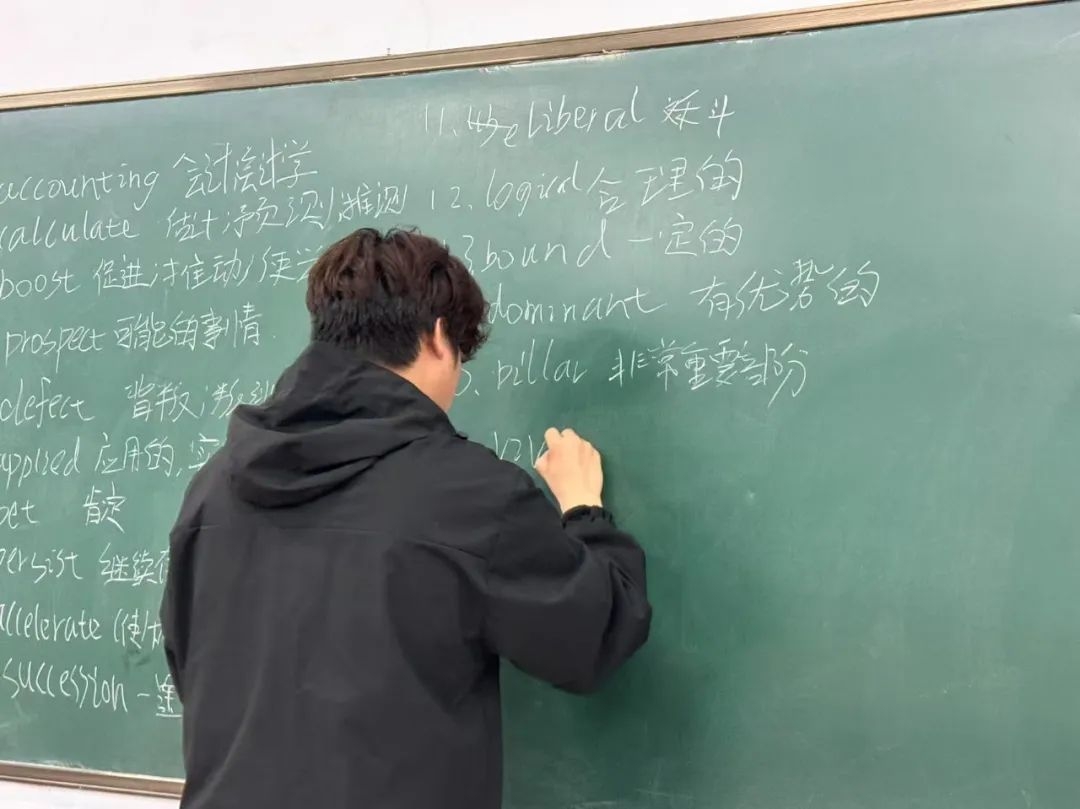 accounting 会计会计学
calculate 估计;预测;推测
boost 促进;推动;使
prospect 可能的事情
defect 背叛;
applied 应用的,
bet 肯定
persist 继续
accelerate (使)
succession 一
11. liberal 文科
12. logical 合理的
bound 一定的
dominant 有优势的
pillar 非常重要部份